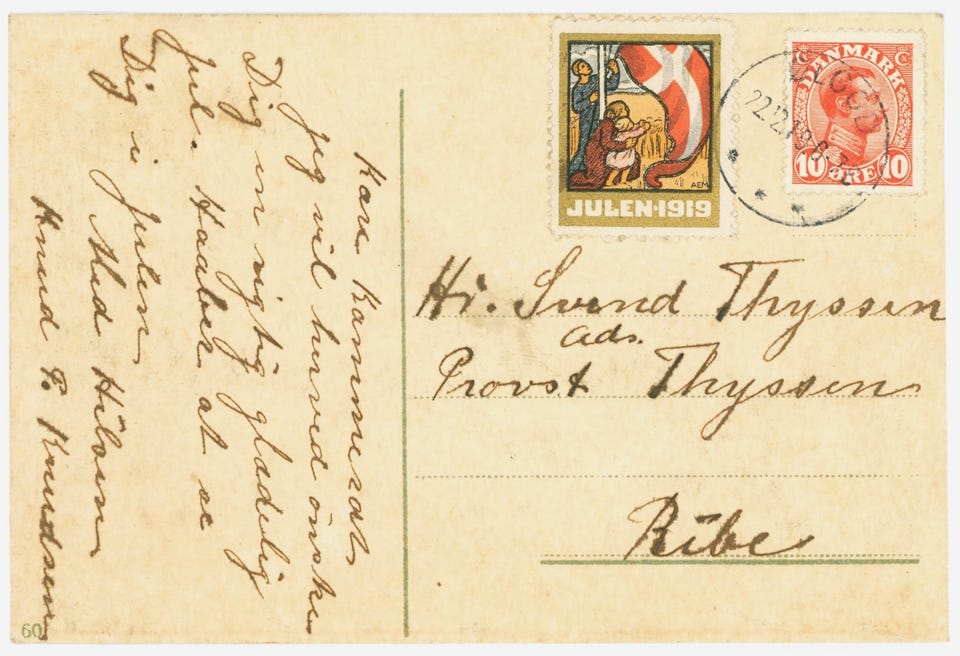 Kære Kammerat.
Jeg vil herved önske
Dig en rigtig glædelig
Jul. Haaber at se
Dig i Julen
Med Hilsen
Knud P. Knudsen
60
JULEN·1919
AEM
DANMARK
10 ØRE 10
22.12.19.
Hr. Svend Thyssen
Adr.
Provst Thyssen
Ribe